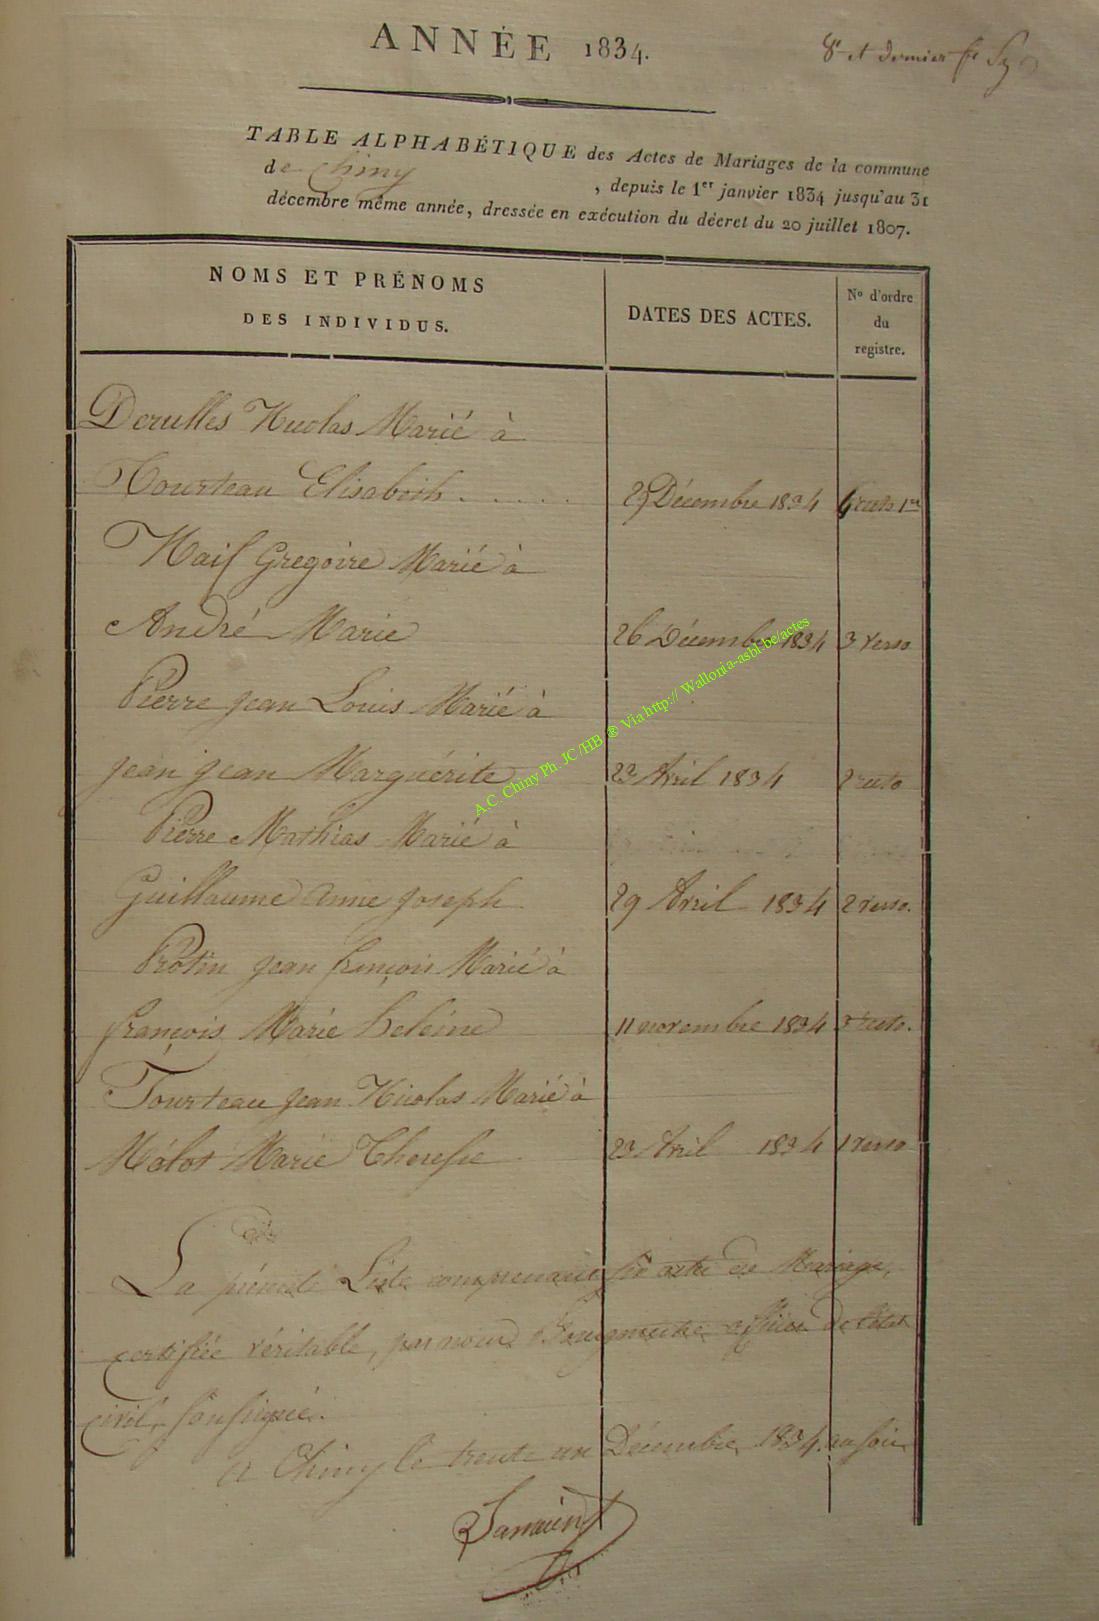 ANNÉE 1834.
8e et dernier
TABLE ALPHABÉTIQUE des Actes de Mariages de la commune
de Chiny , depuis le 1er janvier 1834 jusqu'au 31
décembre même année, dressée en exécution du décret du 20 juillet 1807.
NOMS ET PRÉNOMS
DES INDIVIDUS.
DATES DES ACTES.
No d'ordre
du
registre.
Derulles Nicolas Marié à
Tourteau Elisabeth . . . . . 29 Décembre 1834 4 recto
Naif Gregoire Marié à
André Marie 26 Décembre 1834 3 verso
Pierre Jean Louis Marié à
Jean Jean Marguérite 23 Avril 1834 2 recto
Pierre Mathias Marié à
Guillaume anne Joseph 29 Avril 1834 2 verso.
Protin Jean françois Marié à
françois Marie heleine 11 novembre 1834 3 recto.
Tourteau Jean Nicolas Marié à
Málot Marie Therese 23 Avril 1834 1 verso
La présente Liste comprenant six actes de Mariage,
certifiée véritable, par nous Bourgmestre officier de l'état
civil, soussigné.
a Chiny le trente un Décembre 1834 au soir
A.C. Chiny Ph. JC/HB ® Via http:// Wallonia-asbl-be/actes